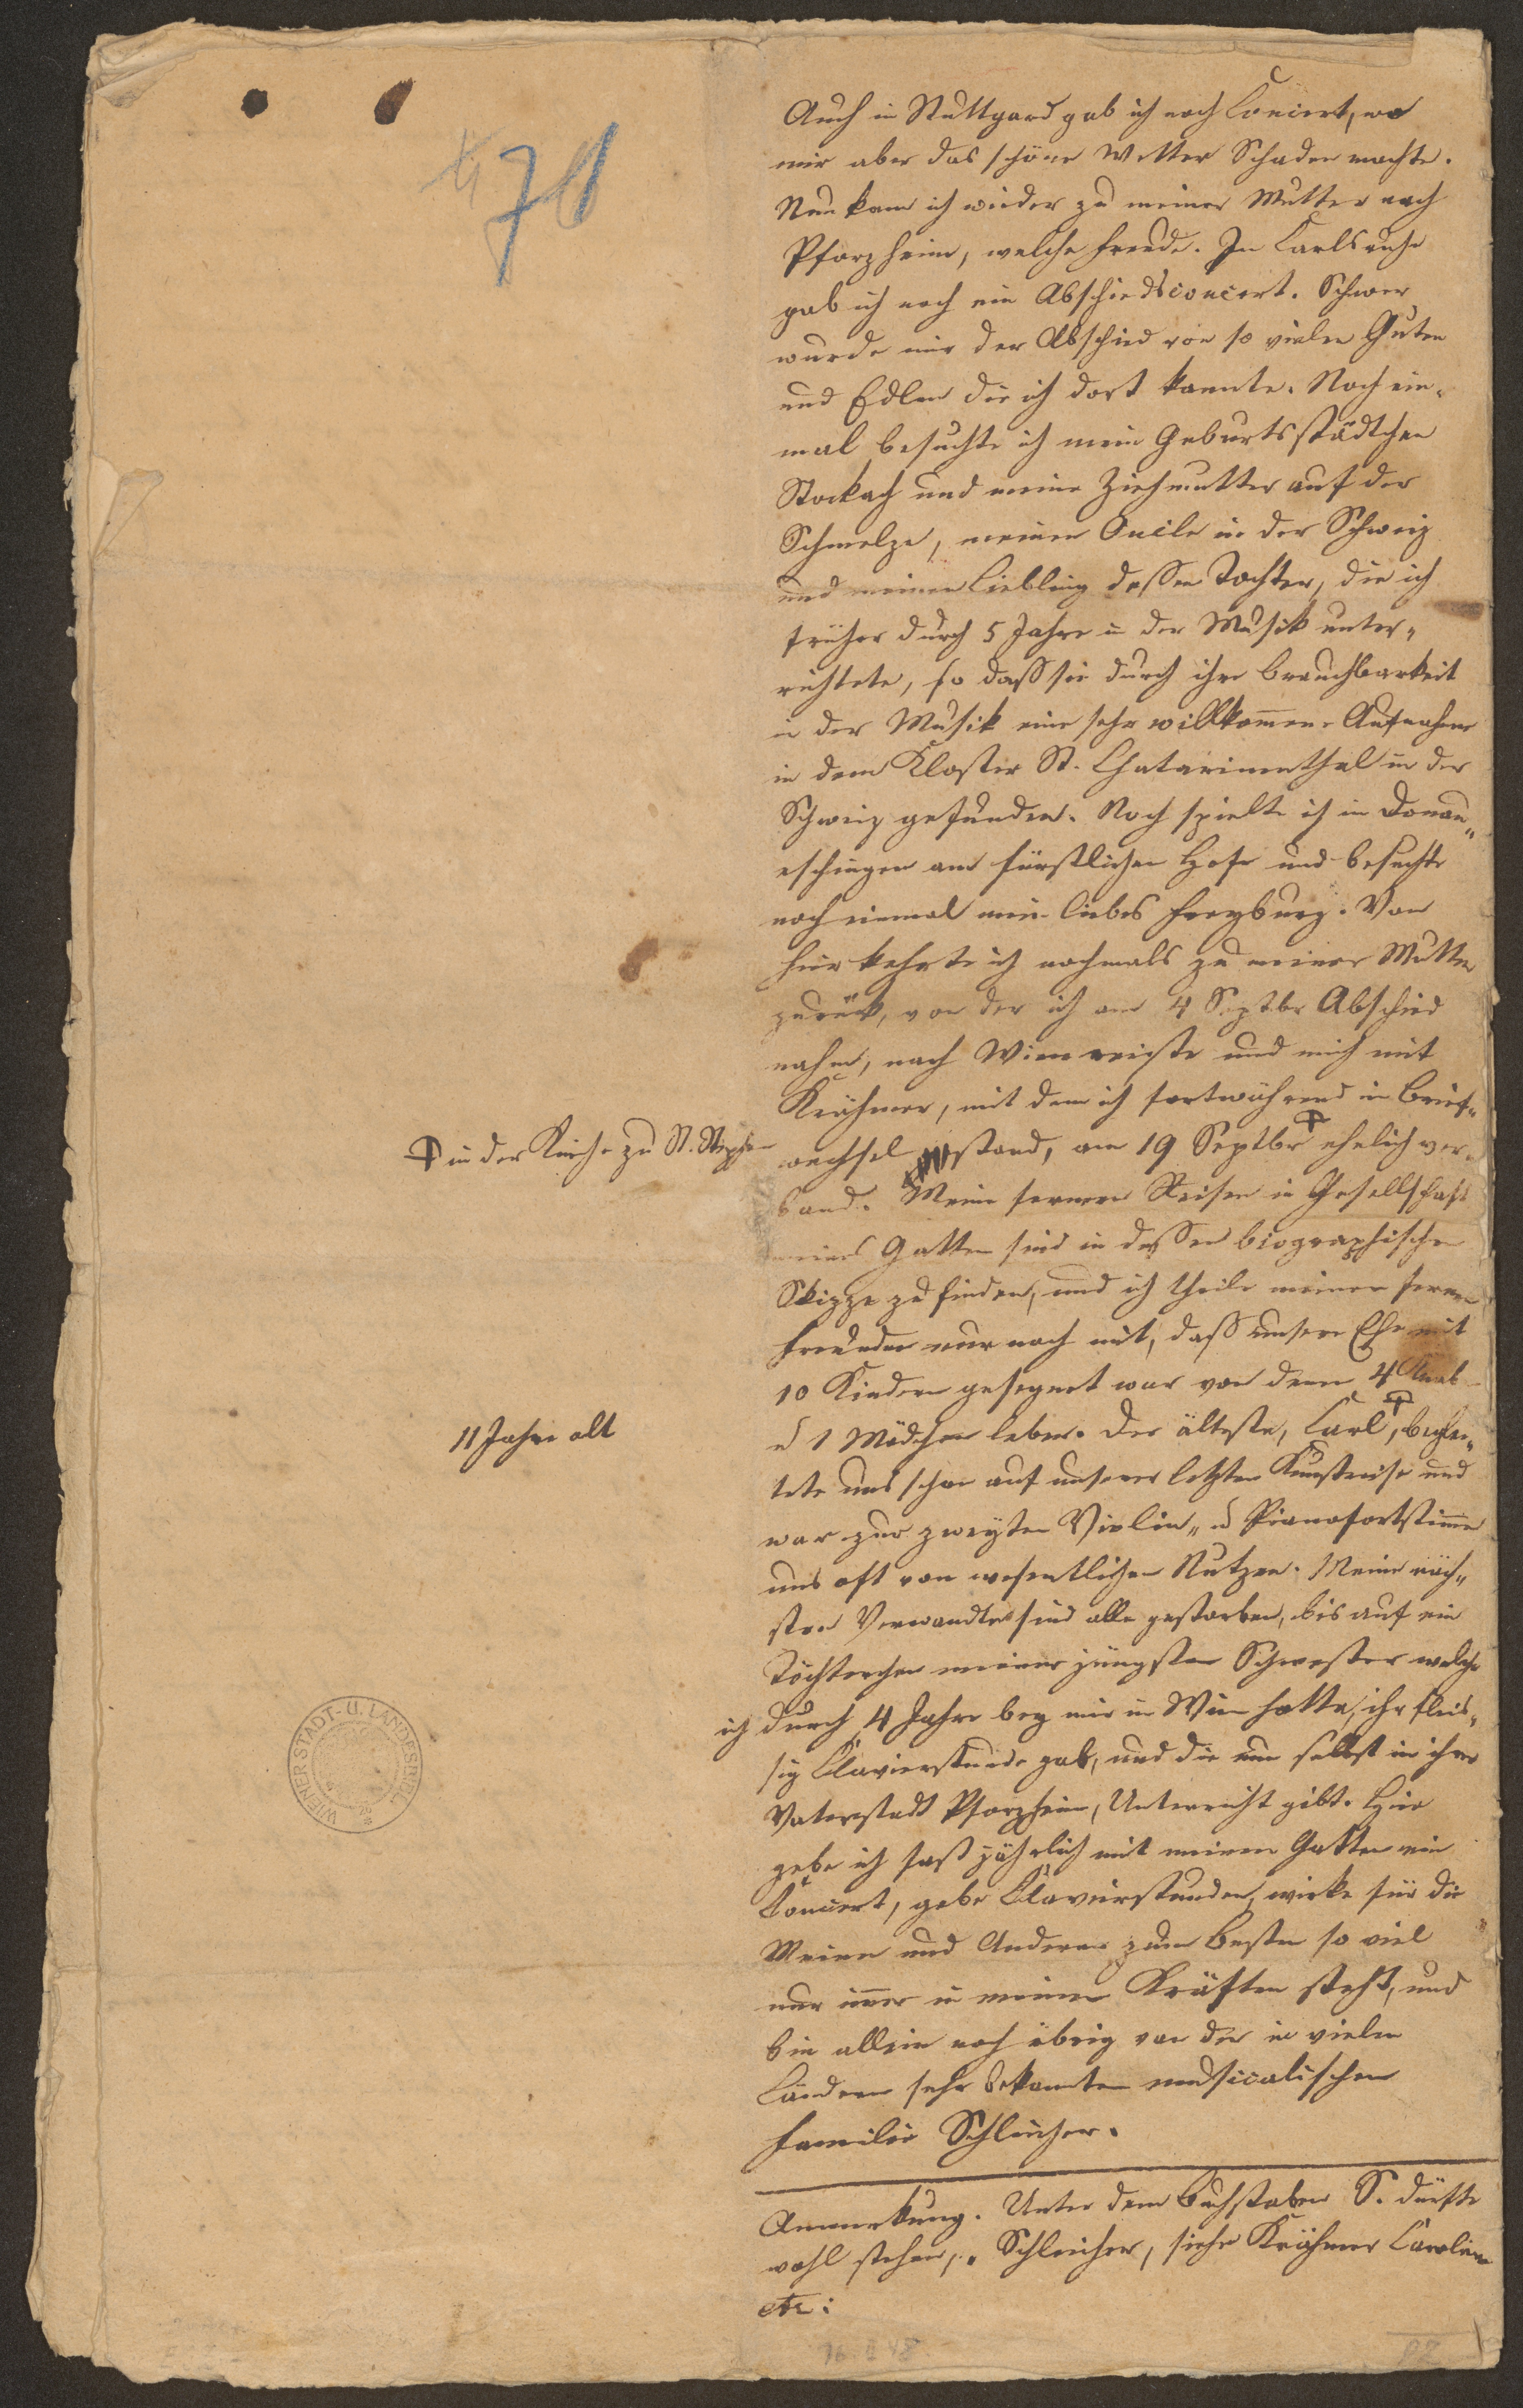 71
Auch in Stuttgard gab ich noch Concert, wo
mir aber das schöne Wetter Schaden machte.
Nun kam ich wieder zu meiner Mutter nach
Pforzheim, welche Freude. In Carlsruhe
gab ich noch ein Abschiedsconcert. Schwer
wurde mir der Abschied von so vielen Guten
und Edlen die ich dort kannte. Noch ein-
mal besuchte ich mein Geburtsstädtchen
Stockach und meine Ziehmutter auf der
Schmelze, meinen Oncle in der Schweiz
und meinen Liebling dessen Tochter, die ich
früher durch 5 Jahre in der Musik unter-
richtete, so daß sie durch ihre Brauchbarkeit
in der Musik eine sehr willkomene Aufnahme
in dem Kloster St. Chatarinenthal in der
Schweiz gefunden. Noch spielte ich in Donau-
eschingen am fürstlichen Hofe und besuchte
noch einmal mein liebes Freyburg. Von
hier kehrte ich nochmals zu meiner Mutter
zurück, von der ich am 4 Septbr Abschied
nahm, nach Wien reiste und mich mit
Krähmer, mit dem ich fortwährend in Brief-
wechsel stand, am 19 Septbr ehelich ver-
band. Meine fernern Reisen in Gesellschaft
meines Gatten sind in dessen biographischer
Skizze zu finden, und ich theile meinen fernen
Freunden nur noch mit, daß unsere Ehe mit
10 Kindern gesegnet war von denen 4 Knab
u 1 Mädchen leben. Der älteste, Carl, beglei-
tete uns schon auf unserer letzten Kunstreise und
war zur zweyten Violin- u Pianofortstimme
uns oft von wesentlichen Nutzen. Meine näch-
sten Verwandten sind alle gestorben, bis auf ein
Töchterchen meiner jüngsten Schwester welche
ich durch 4 Jahre bey mir in Wien hatte, ihr fleis-
sig Clavierstunde gab, und die nun selbst in ihrer
Vaterstadt Pforzheim, Unterricht gibt. Hier
gebe ich fast jährlich mit meinem Gatten ein
Concert, gebe Clavierstunden, wirke für die
Meinen und Anderen zum Besten so viel
nur imer in meinen Kräften steht, und
bin allein noch übrig von der in vielen
Ländern sehr bekannten musicalischen
Familie Schleicher.
Anmerkung. Unter dem Buchstaben S. dürfte
wohl stehen, Schleicher, siehe Krähmer Caroline
etc:
in der Kirche zu St. Stephan
11 Jahre alt
WIENER STADT- U. LANDESBIBL.